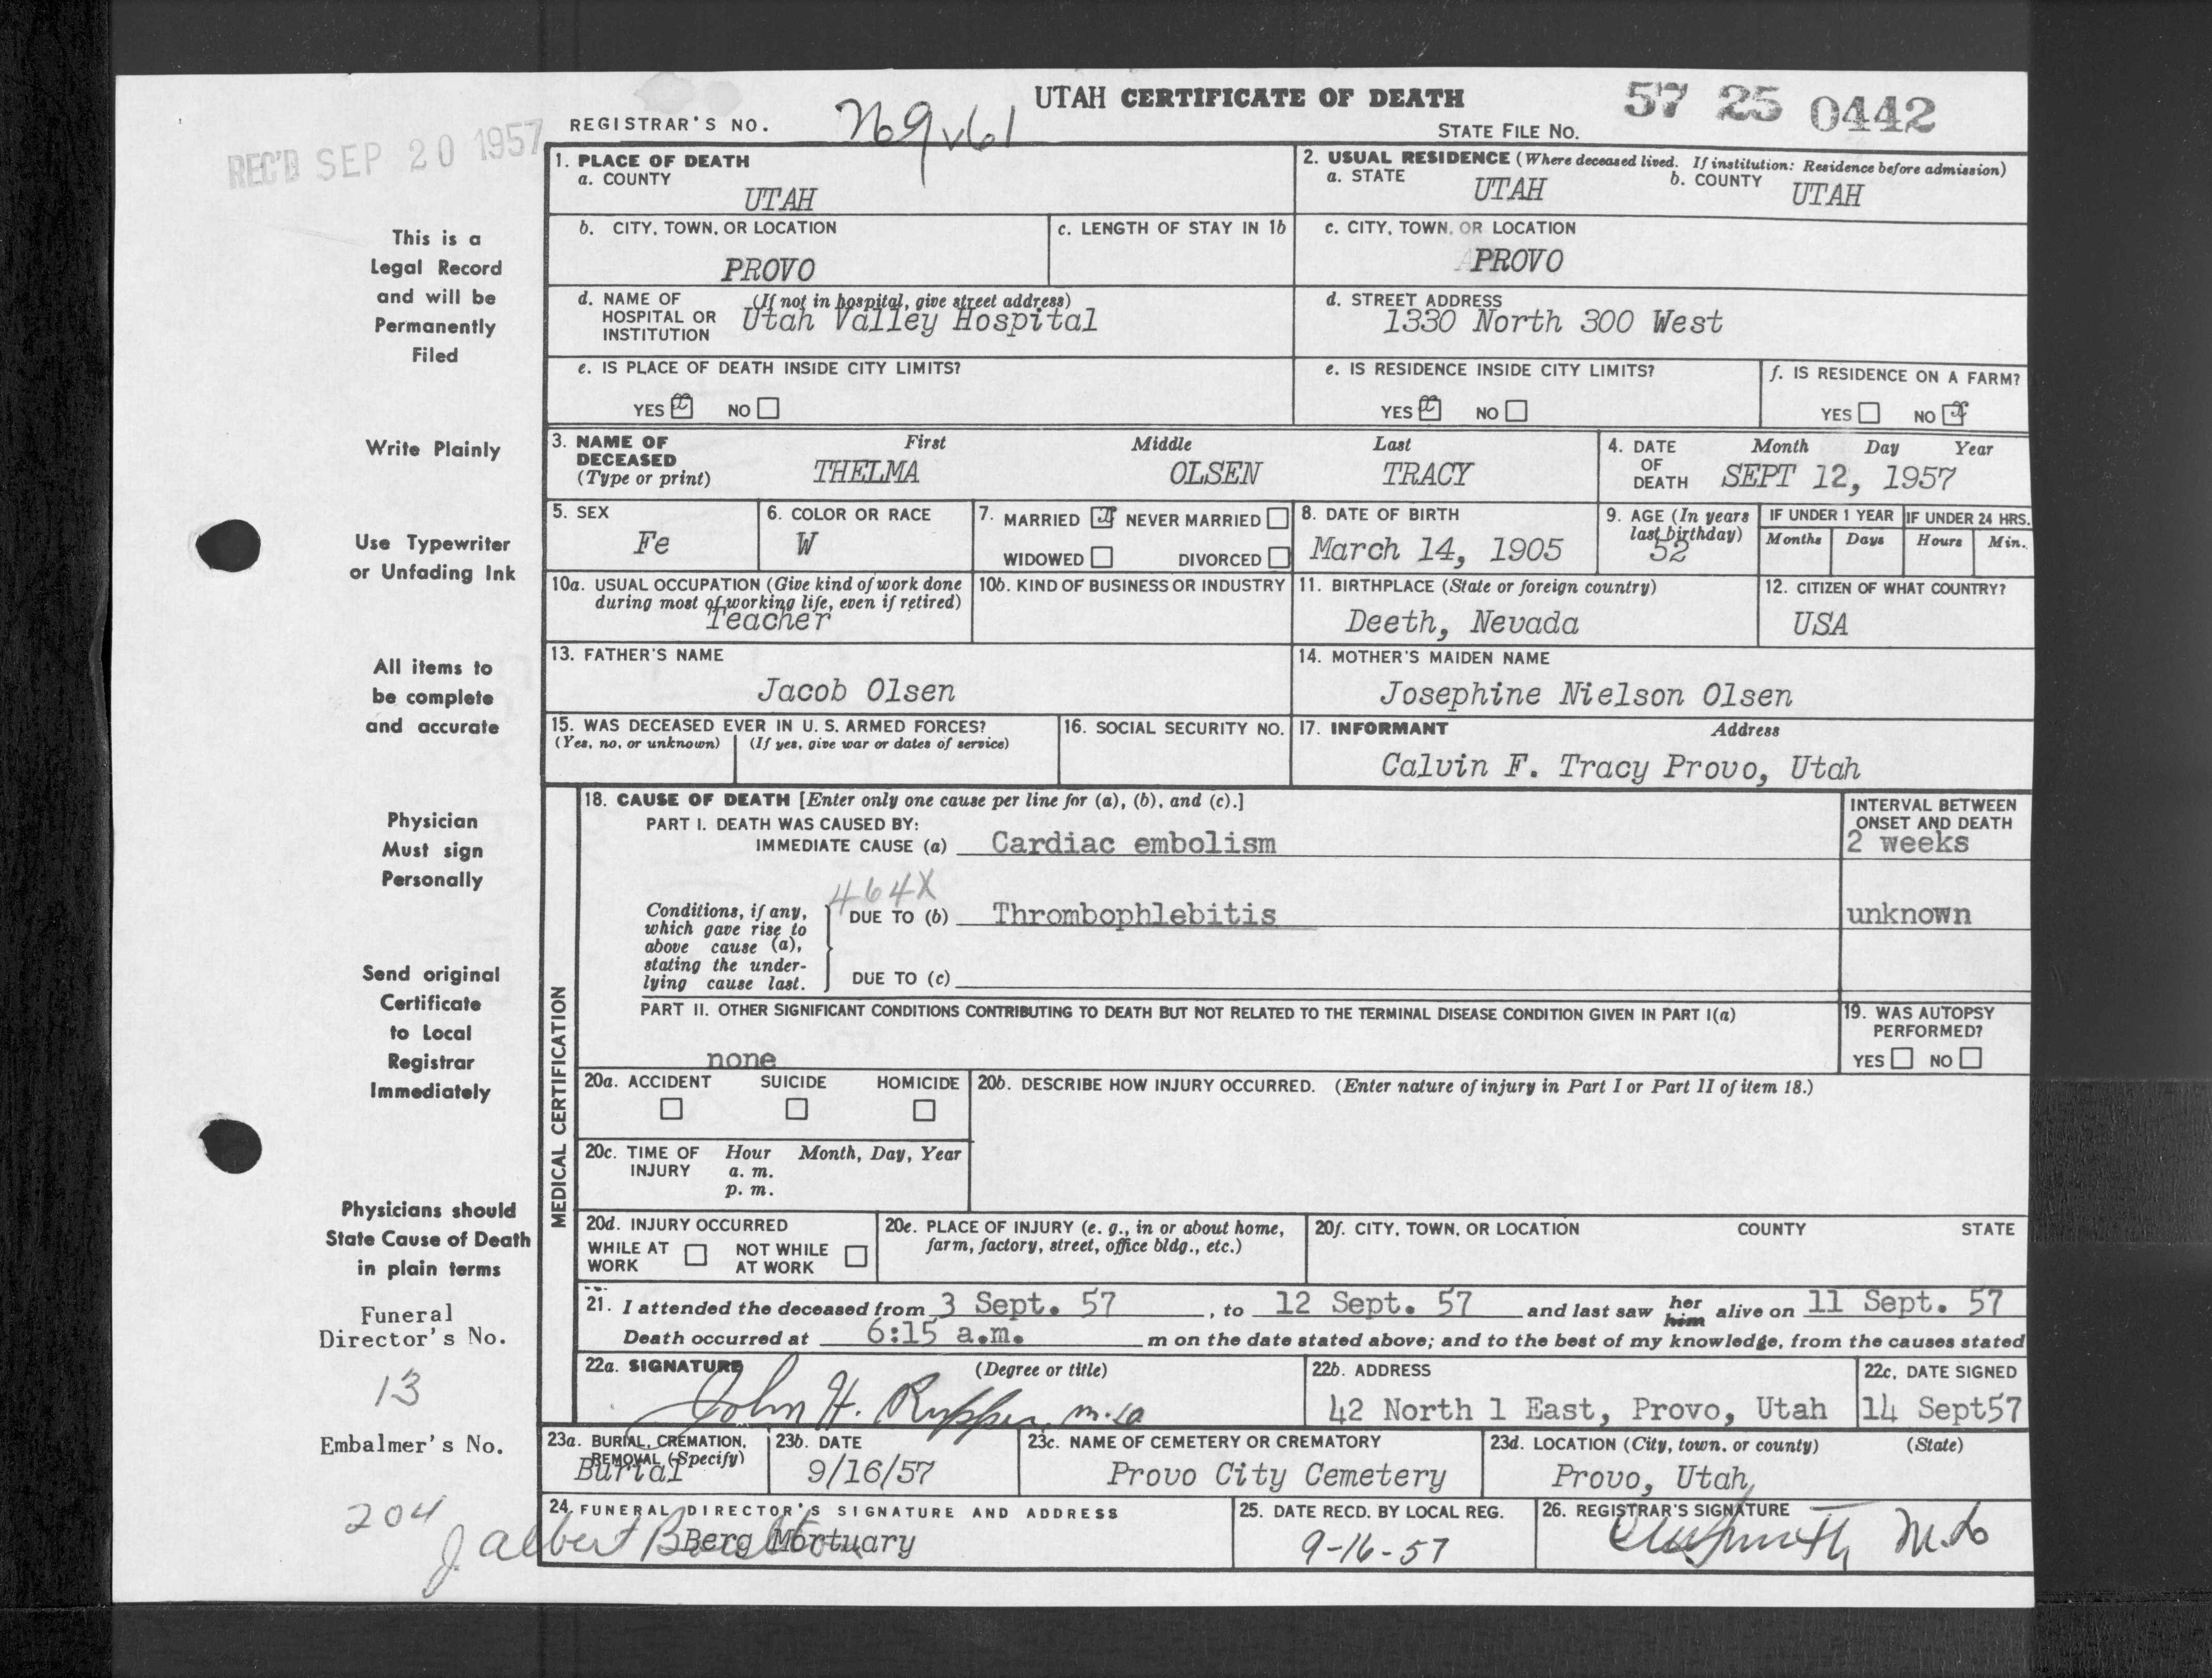 UTAH CERTIFICATE OF DEATH
57 25 0442
REGISTRAR'S NO.
STATE FILE NO.
REC'D SEP 20 1957
1. PLACE OF DEATH
a. COUNTY
UTAH
2. USUAL RESIDENCE (Where deceased lived. If institution: Residence before admission)
a. STATE UTAH b. COUNTY UTAH
b. CITY, TOWN, OR LOCATION
PROVO
c. LENGTH OF STAY IN 1b
c. CITY, TOWN, OR LOCATION
PROVO
d. NAME OF HOSPITAL OR INSTITUTION (If not in hospital, give street address)
Utah Valley Hospital
d. STREET ADDRESS
1330 North 300 West
e. IS PLACE OF DEATH INSIDE CITY LIMITS?
YES x NO
e. IS RESIDENCE INSIDE CITY LIMITS?
YES x NO
f. IS RESIDENCE ON A FARM?
YES NO x
3. NAME OF DECEASED (Type or print)
First Middle Last
THELMA OLSEN TRACY
4. DATE OF DEATH Month Day Year
SEPT 12, 1957
5. SEX
Fe
6. COLOR OR RACE
W
7. MARRIED x NEVER MARRIED
WIDOWED DIVORCED
8. DATE OF BIRTH
March 14, 1905
9. AGE (In years last birthday)
52
IF UNDER 1 YEAR IF UNDER 24 HRS.
Months Days Hours Min.
10a. USUAL OCCUPATION (Give kind of work done during most of working life, even if retired)
Teacher
10b. KIND OF BUSINESS OR INDUSTRY
11. BIRTHPLACE (State or foreign country)
Deeth, Nevada
12. CITIZEN OF WHAT COUNTRY?
USA
13. FATHER'S NAME
Jacob Olsen
14. MOTHER'S MAIDEN NAME
Josephine Nielson Olsen
15. WAS DECEASED EVER IN U. S. ARMED FORCES?
(Yes, no, or unknown) (If yes, give war or dates of service)
16. SOCIAL SECURITY NO.
17. INFORMANT Address
Calvin F. Tracy Provo, Utah
MEDICAL CERTIFICATION
18. CAUSE OF DEATH [Enter only one cause per line for (a), (b), and (c).]
PART I. DEATH WAS CAUSED BY:
IMMEDIATE CAUSE (a) Cardiac embolism
INTERVAL BETWEEN ONSET AND DEATH
2 weeks
464X
Conditions, if any, which gave rise to above cause (a), stating the underlying cause last.
DUE TO (b) Thrombophlebitis
unknown
DUE TO (c)
PART II. OTHER SIGNIFICANT CONDITIONS CONTRIBUTING TO DEATH BUT NOT RELATED TO THE TERMINAL DISEASE CONDITION GIVEN IN PART I(a)
none
19. WAS AUTOPSY PERFORMED?
YES NO
20a. ACCIDENT SUICIDE HOMICIDE
20b. DESCRIBE HOW INJURY OCCURRED. (Enter nature of injury in Part I or Part II of item 18.)
20c. TIME OF INJURY Hour Month, Day, Year
a. m.
p. m.
20d. INJURY OCCURRED
WHILE AT WORK NOT WHILE AT WORK
20e. PLACE OF INJURY (e. g., in or about home, farm, factory, street, office bldg., etc.)
20f. CITY, TOWN, OR LOCATION COUNTY STATE
21. I attended the deceased from 3 Sept. 57, to 12 Sept. 57 and last saw her him alive on 11 Sept. 57
Death occurred at 6:15 a.m. m on the date stated above; and to the best of my knowledge, from the causes stated
22a. SIGNATURE (Degree or title)
John H. Rupper, M.D.
22b. ADDRESS
42 North 1 East, Provo, Utah
22c. DATE SIGNED
14 Sept57
23a. BURIAL, CREMATION, REMOVAL (Specify)
Burial
23b. DATE
9/16/57
23c. NAME OF CEMETERY OR CREMATORY
Provo City Cemetery
23d. LOCATION (City, town, or county) (State)
Provo, Utah
24. FUNERAL DIRECTOR'S SIGNATURE AND ADDRESS
J. albert
Berg Mortuary
25. DATE RECD. BY LOCAL REG.
9-16-57
26. REGISTRAR'S SIGNATURE
M.D
This is a
Legal Record
and will be
Permanently
Filed
Write Plainly
Use Typewriter
or Unfading Ink
All items to
be complete
and accurate
Physician
Must sign
Personally
Send original
Certificate
to Local
Registrar
Immediately
Physicians should
State Cause of Death
in plain terms
Funeral
Director's No.
13
Embalmer's No.
204